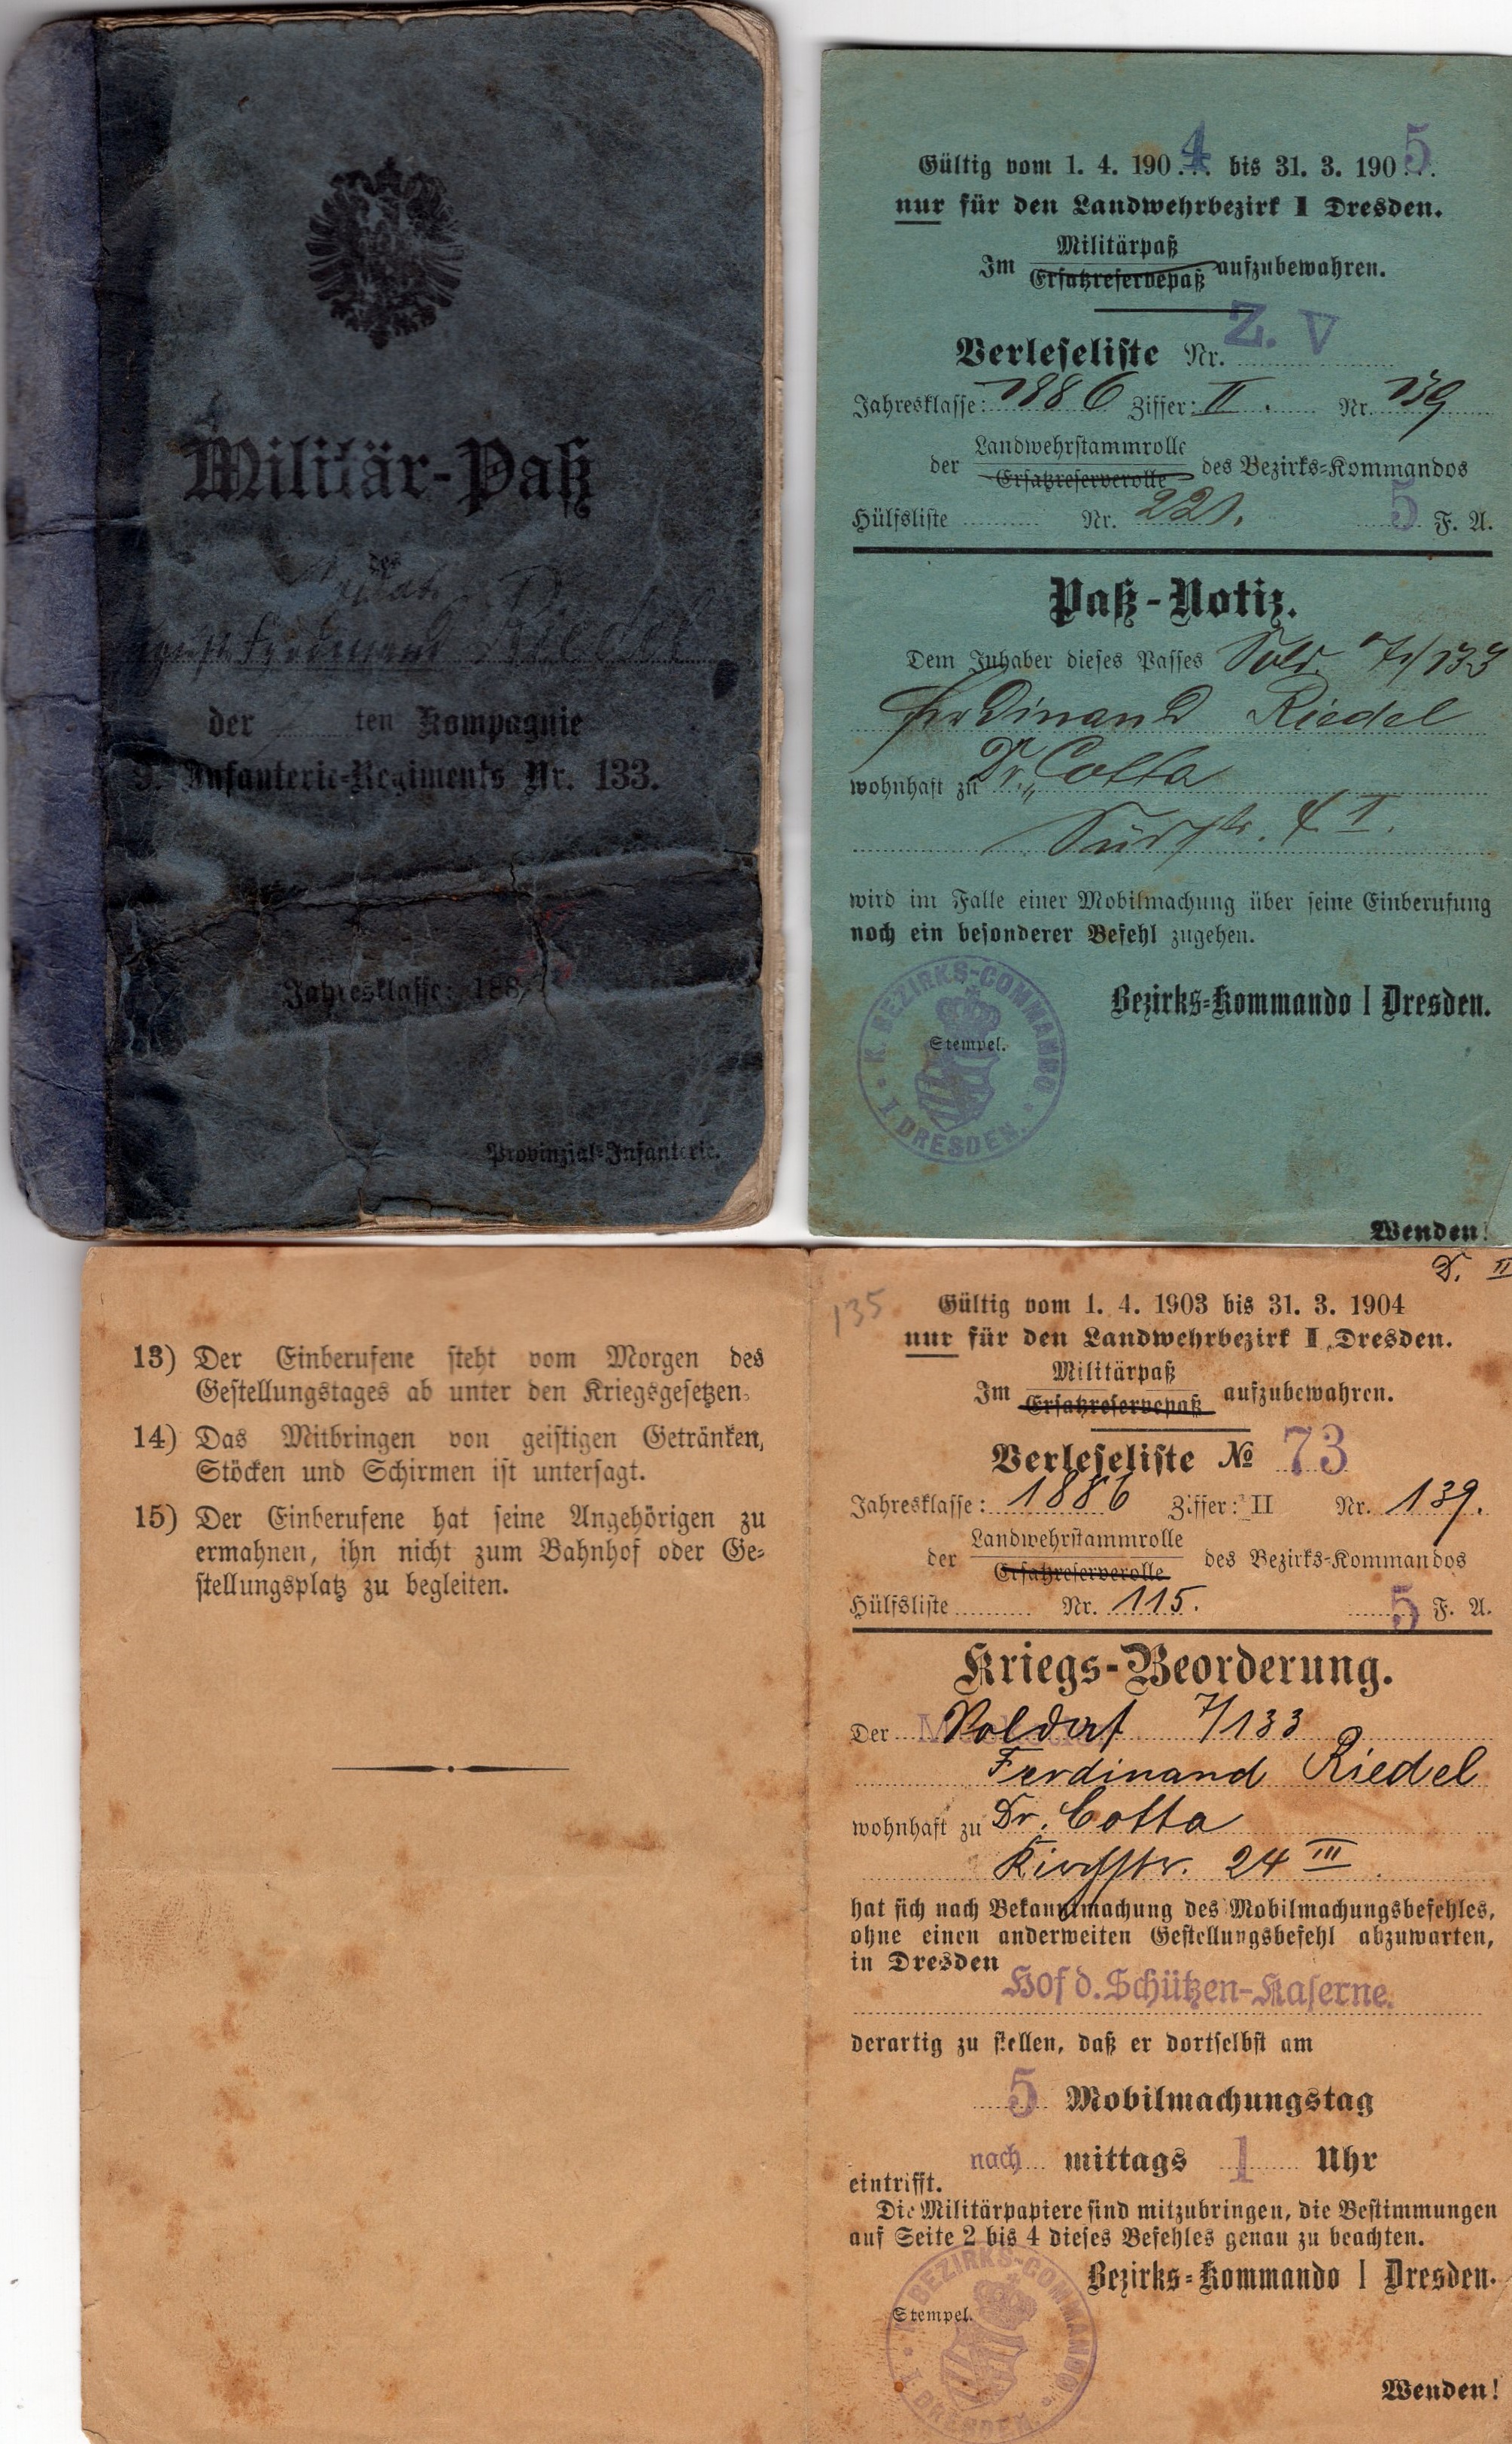 Militär-Paß
des
Ferdinand Riedel
der 7 ten Kompagnie
9. Infanterie-Regiments Nr. 133.
Jahresklasse: 188
Provinzial-Infanterie.
Gültig vom 1. 4. 1904 bis 31. 3. 1905
nur für den Landwehrbezirk I Dresden.
Im Militärpaß aufzubewahren.
Ersatzreservepaß
Verleseliste Nr. Z. V
Jahresklasse: 1886 Ziffer: II. Nr. 139
Landwehrstammrolle
der Ersatzreserverolle des Bezirks-Kommandos
Hülfsliste Nr. 221. 5 F. A.
Paß-Notiz.
Dem Inhaber dieses Passes Sold. 7/133
Ferdinand Riedel
wohnhaft zu Dr. Cotta
Südstr. 4 I.
wird im Falle einer Mobilmachung über seine Einberufung
noch ein besonderer Befehl zugehen.
Bezirks-Kommando I Dresden.
K. BEZIRKS-COMMANDO
I. DRESDEN.
Stempel.
Wenden!
13) Der Einberufene steht vom Morgen des
Gestellungstages ab unter den Kriegsgesetzen.
14) Das Mitbringen von geistigen Getränken,
Stöcken und Schirmen ist untersagt.
15) Der Einberufene hat seine Angehörigen zu
ermahnen, ihn nicht zum Bahnhof oder Ge-
stellungsplatz zu begleiten.
D. II
135
Gültig vom 1. 4. 1903 bis 31. 3. 1904
nur für den Landwehrbezirk I Dresden.
Im Militärpaß aufzubewahren.
Ersatzreservepaß
Verleseliste № 73
Jahresklasse: 1886 Ziffer: II Nr. 139.
Landwehrstammrolle
der Ersatzreserverolle des Bezirks-Kommandos
Hülfsliste Nr. 115. 5 F. A.
Kriegs-Beorderung.
Der Soldat 7/133
Ferdinand Riedel
wohnhaft zu Dr. Cotta
Kirchstr. 24 III.
hat sich nach Bekanntmachung des Mobilmachungsbefehles,
ohne einen anderweiten Gestellungsbefehl abzuwarten,
in Dresden
Hof d. Schützen-Kaserne.
derartig zu stellen, daß er dortselbst am
5 Mobilmachungstag
nach mittags 1 Uhr
eintrifft.
Die Militärpapiere sind mitzubringen, die Bestimmungen
auf Seite 2 bis 4 dieses Befehles genau zu beachten.
Bezirks-Kommando I Dresden.
K. BEZIRKS-COMMANDO
I. DRESDEN.
Stempel.
Wenden!